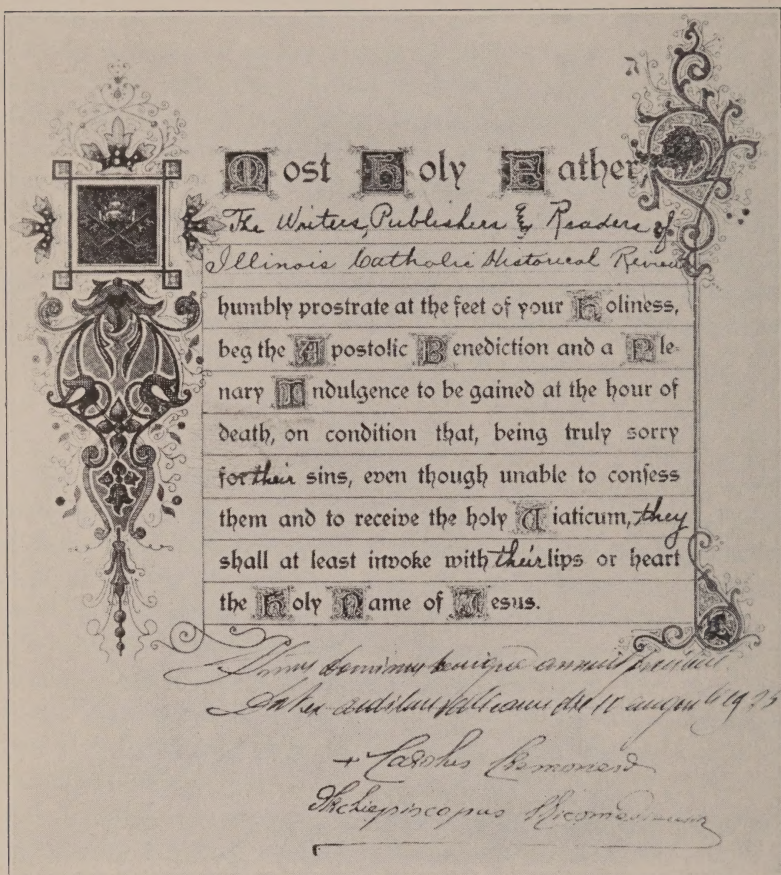 Most Holy Father
The Writers, Publishers & Readers of
Illinois Catholic Historical Review
humbly prostrate at the feet of your Holiness,
beg the Apostolic Benediction and a Ple-
nary Indulgence to be gained at the hour of
death, on condition that, being truly sorry
for their sins, even though unable to confess
them and to receive the holy Viaticum, they
shall at least invoke with their lips or heart
the Holy Name of Jesus.
dominus benigne annuit
Vaticani die 11 augusti 1923
+ Carolus Cremonesi
Archiepiscopus